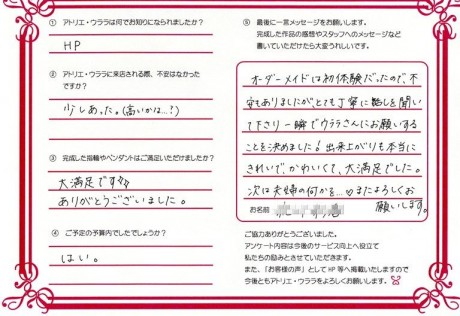 ① アトリエ・ウララは何でお知りになられましたか？
HP
② アトリエ・ウララに来店される際、不安はなかった
ですか？
少しあった。(高いかは…?)
③ 完成した指輪やペンダントはご満足いただけましたか？
大満足です
ありがとうございました。
④ ご予定の予算内でしたでしょうか？
はい。
⑤ 最後に一言メッセージをお願いします。
完成した作品の感想やスタッフへのメッセージなど
書いていただけたら大変うれしいです。
オーダーメイドは初体験だったので、不
安もありましたがとても丁寧に話しを聞い
て下さり一瞬でウララさんにお願いする
ことを決めました！出来上がりも本当に
きれいで、かわいくて、大満足でした。
次は夫婦の何かを…♡またよろしくお
願いします。
お名前
ご協力ありがとうございました。
アンケート内容は今後のサービス向上へ役立て
私たちの励みとさせていただきます。
また、「お客様の声」としてHP等へ掲載いたしますので
今後ともアトリエ・ウララをよろしくお願いします。